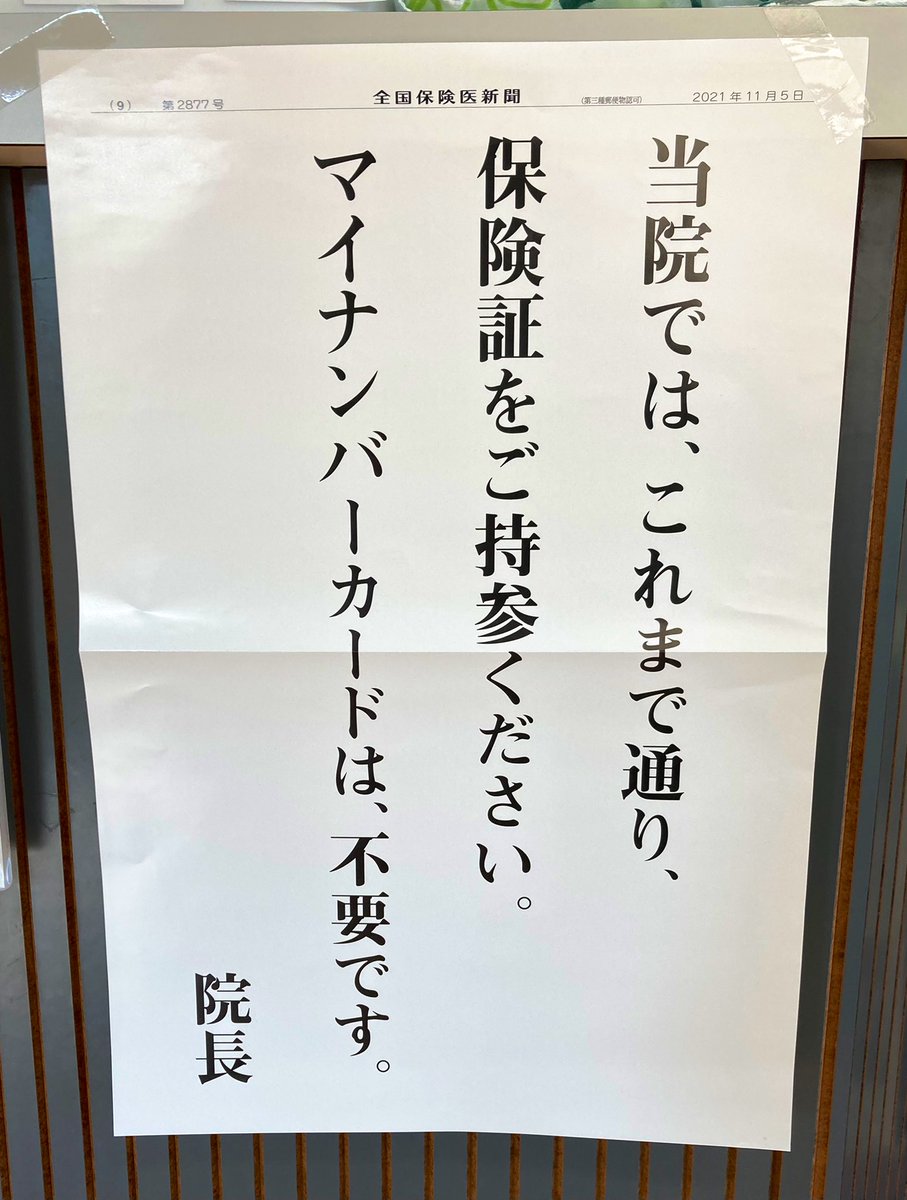 (9) 第2877号 全国保険医新聞 (第三種郵便物認可) 2021年11月5日
当院では、これまで通り、
保険証をご持参ください。
マイナンバーカードは、不要です。
院長